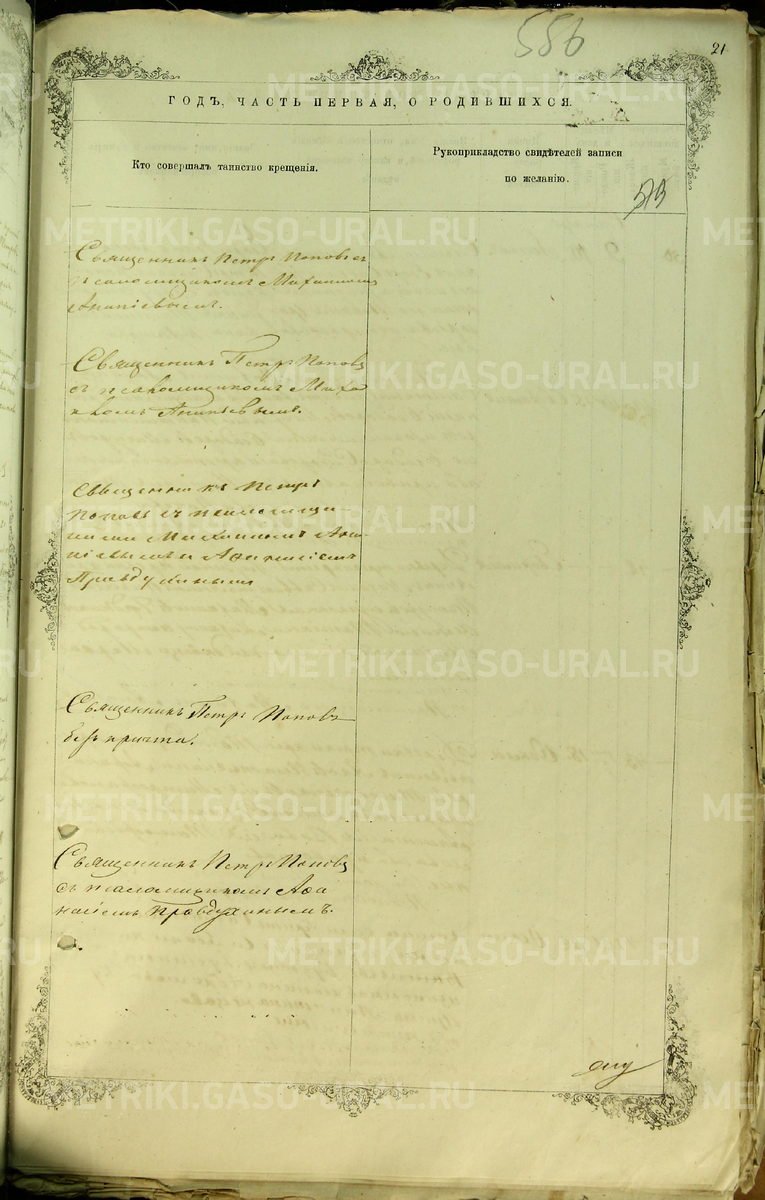 586
21
ГОДЪ, ЧАСТЬ ПЕРВАЯ, О РОДИВШИХСЯ.
Кто совершалъ таинство крещенія.
Рукоприкладство свидѣтелей записи
по желанію.
Священникъ Петръ Поповъ съ
псаломщикомъ Михаиломъ
Ананіевымъ.
Священникъ Петръ Поповъ
съ псаломщикомъ Миха
иломъ Ананіевымъ.
Священникъ Петръ
Поповъ съ псаломщи-
ками Михаиломъ Ана
ніевымъ и Аѳанасіемъ
Правдухинымъ
Священникъ Петръ Поповъ
безъ причта.
Священникъ Петръ Поповъ
съ псаломщикомъ Аѳа
насіемъ Правдухинымъ.
METRIKI.GASO-URAL.RU